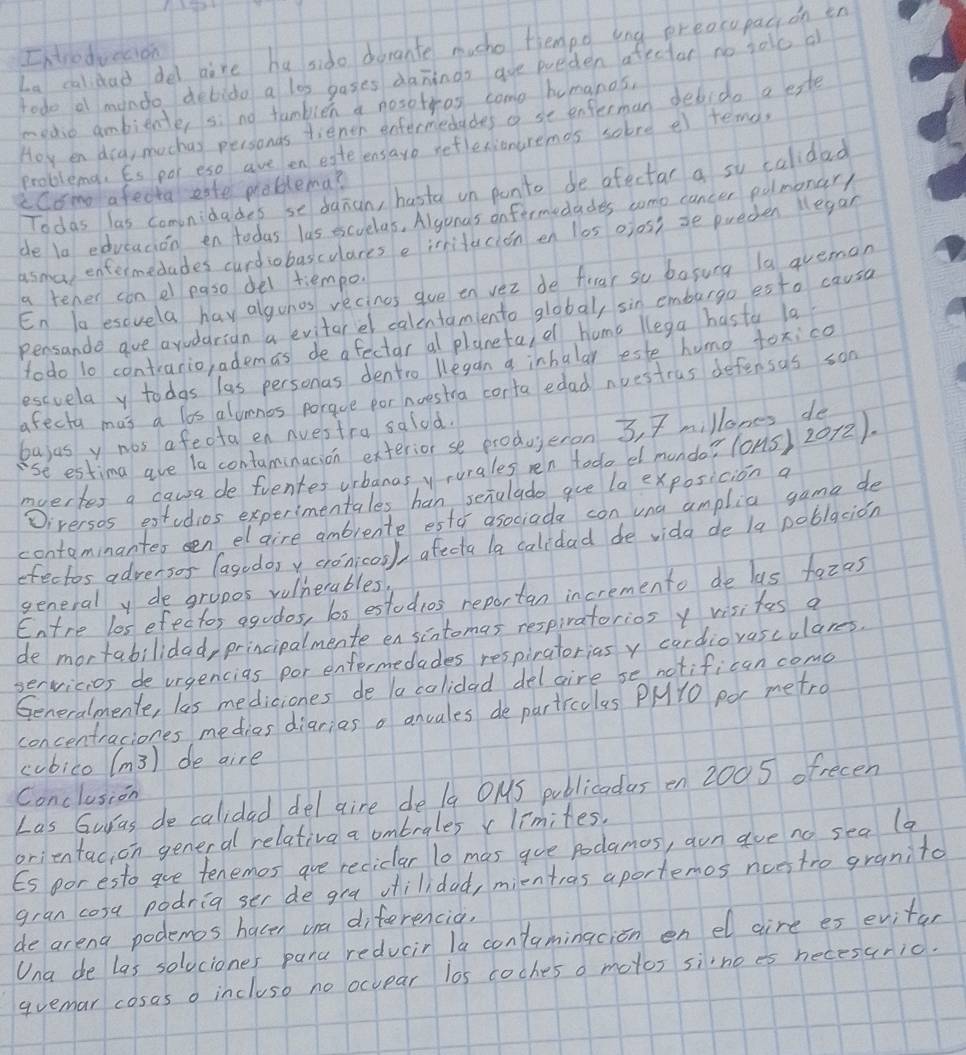 Introducción
La calidad del aire ha sido durante mucho tiempo una preocupación en
todo el mundo, debido a los gases dañinos que pueden afectar no solo al
medio ambiente, si no tambien a nosotros como humanos.
Hoy en dia, muchas personas tienen enfermedades o se enferman debido a este
problema. Es por eso que en este ensayo reflexionaremos sobre el tema.
¿Como afecta este problema?
Todas las comunidades se dañan, hasta un punto de afectar a su calidad
de la educación en todas las escuelas. Algunas enfermedades como cancer pulmonar y
asma, enfermedades cardiobasculares e irritación en los ojos; se pueden llegar
a tener con el paso del tiempo.
En la escuela hay algunos vecinos que en vez de tirar su basura la queman
pensando que ayudarian a evitar el calentamiento global, sin embargo esto causa
todo lo contrario, ademas de afectar al planeta, el humo llega hasta la
escuela y todas las personas dentro llegan a inhalar este humo toxico
afecta mas a los alumnos porque por nuestra corta edad nuestras defensas son
bajas y nos afecta en nuestra salud.
"Se estima que la contaminación exterior se produjeron 3,7 millones de
muertes a causa de fuentes urbanas y rurales en todo el mundo" (OMS, 2012).
Diversos estudios experimentales han señalado que la exposición a
contaminantes en el aire ambiente está asociada con una amplia gama de
efectos adversos (agudos y crónicos), afecta la calidad de vida de la población
general y de grupos vulnerables.
Entre los efectos agudos, los estudios reportan incremento de las tazas
de mortabilidad, principalmente en síntomas respiratorios y visitas a
servicios de urgencias por enfermedades respiratorias y cardiovasculares.
Generalmente, las mediciones de la calidad del aire se notifican como
concentraciones medias diarias o anuales de particulas PM10 por metro
cubico (m3) de aire
Conclusión
Las Guías de calidad del aire de la OMS publicadas en 2005 ofrecen
orientación general relativa a ombrales y límites.
Es por esto que tenemos que reciclar lo mas que podamos, aun que no sea la
gran cosa podria ser de gra utilidad, mientras aportemos nuestro granito
de arena podemos hacer una diferencia.
Una de las soluciones para reducir la contaminación en el aire es evitar
quemar cosas o incluso no ocupar los coches o motos si no es necesario.